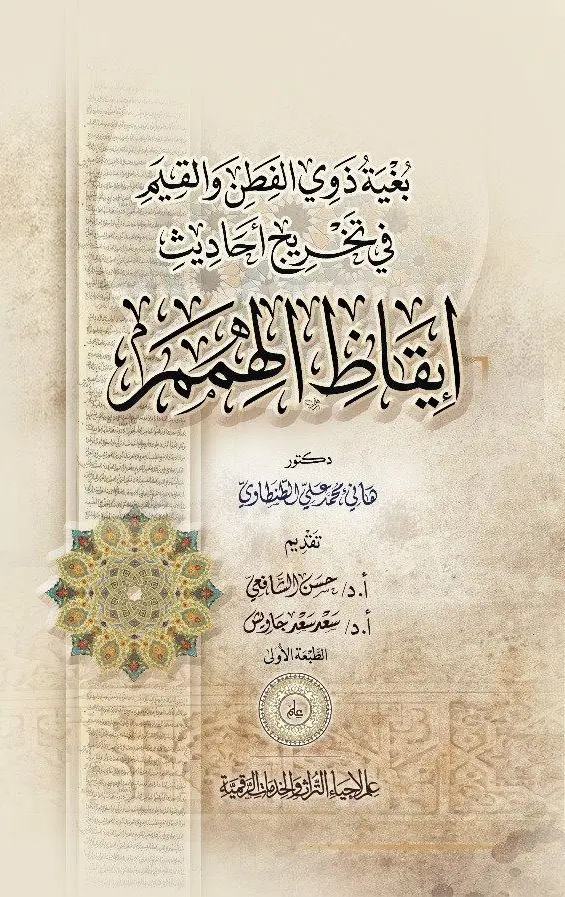 بُغْيَةُ ذَوِي الفِطَنِ وَالقِيَمِ
فِي تَخْرِيجِ أَحَادِيثِ
إِيقَاظِ الهِمَمِ
دكتور
هاني محمد علي الطنطاوي
تقديم
أ.د/ حسن الشافعي
أ.د/ سعد سعد جاويش
الطبعة الأولى
علم
علم لإحياء التراث والخدمات الرقمية